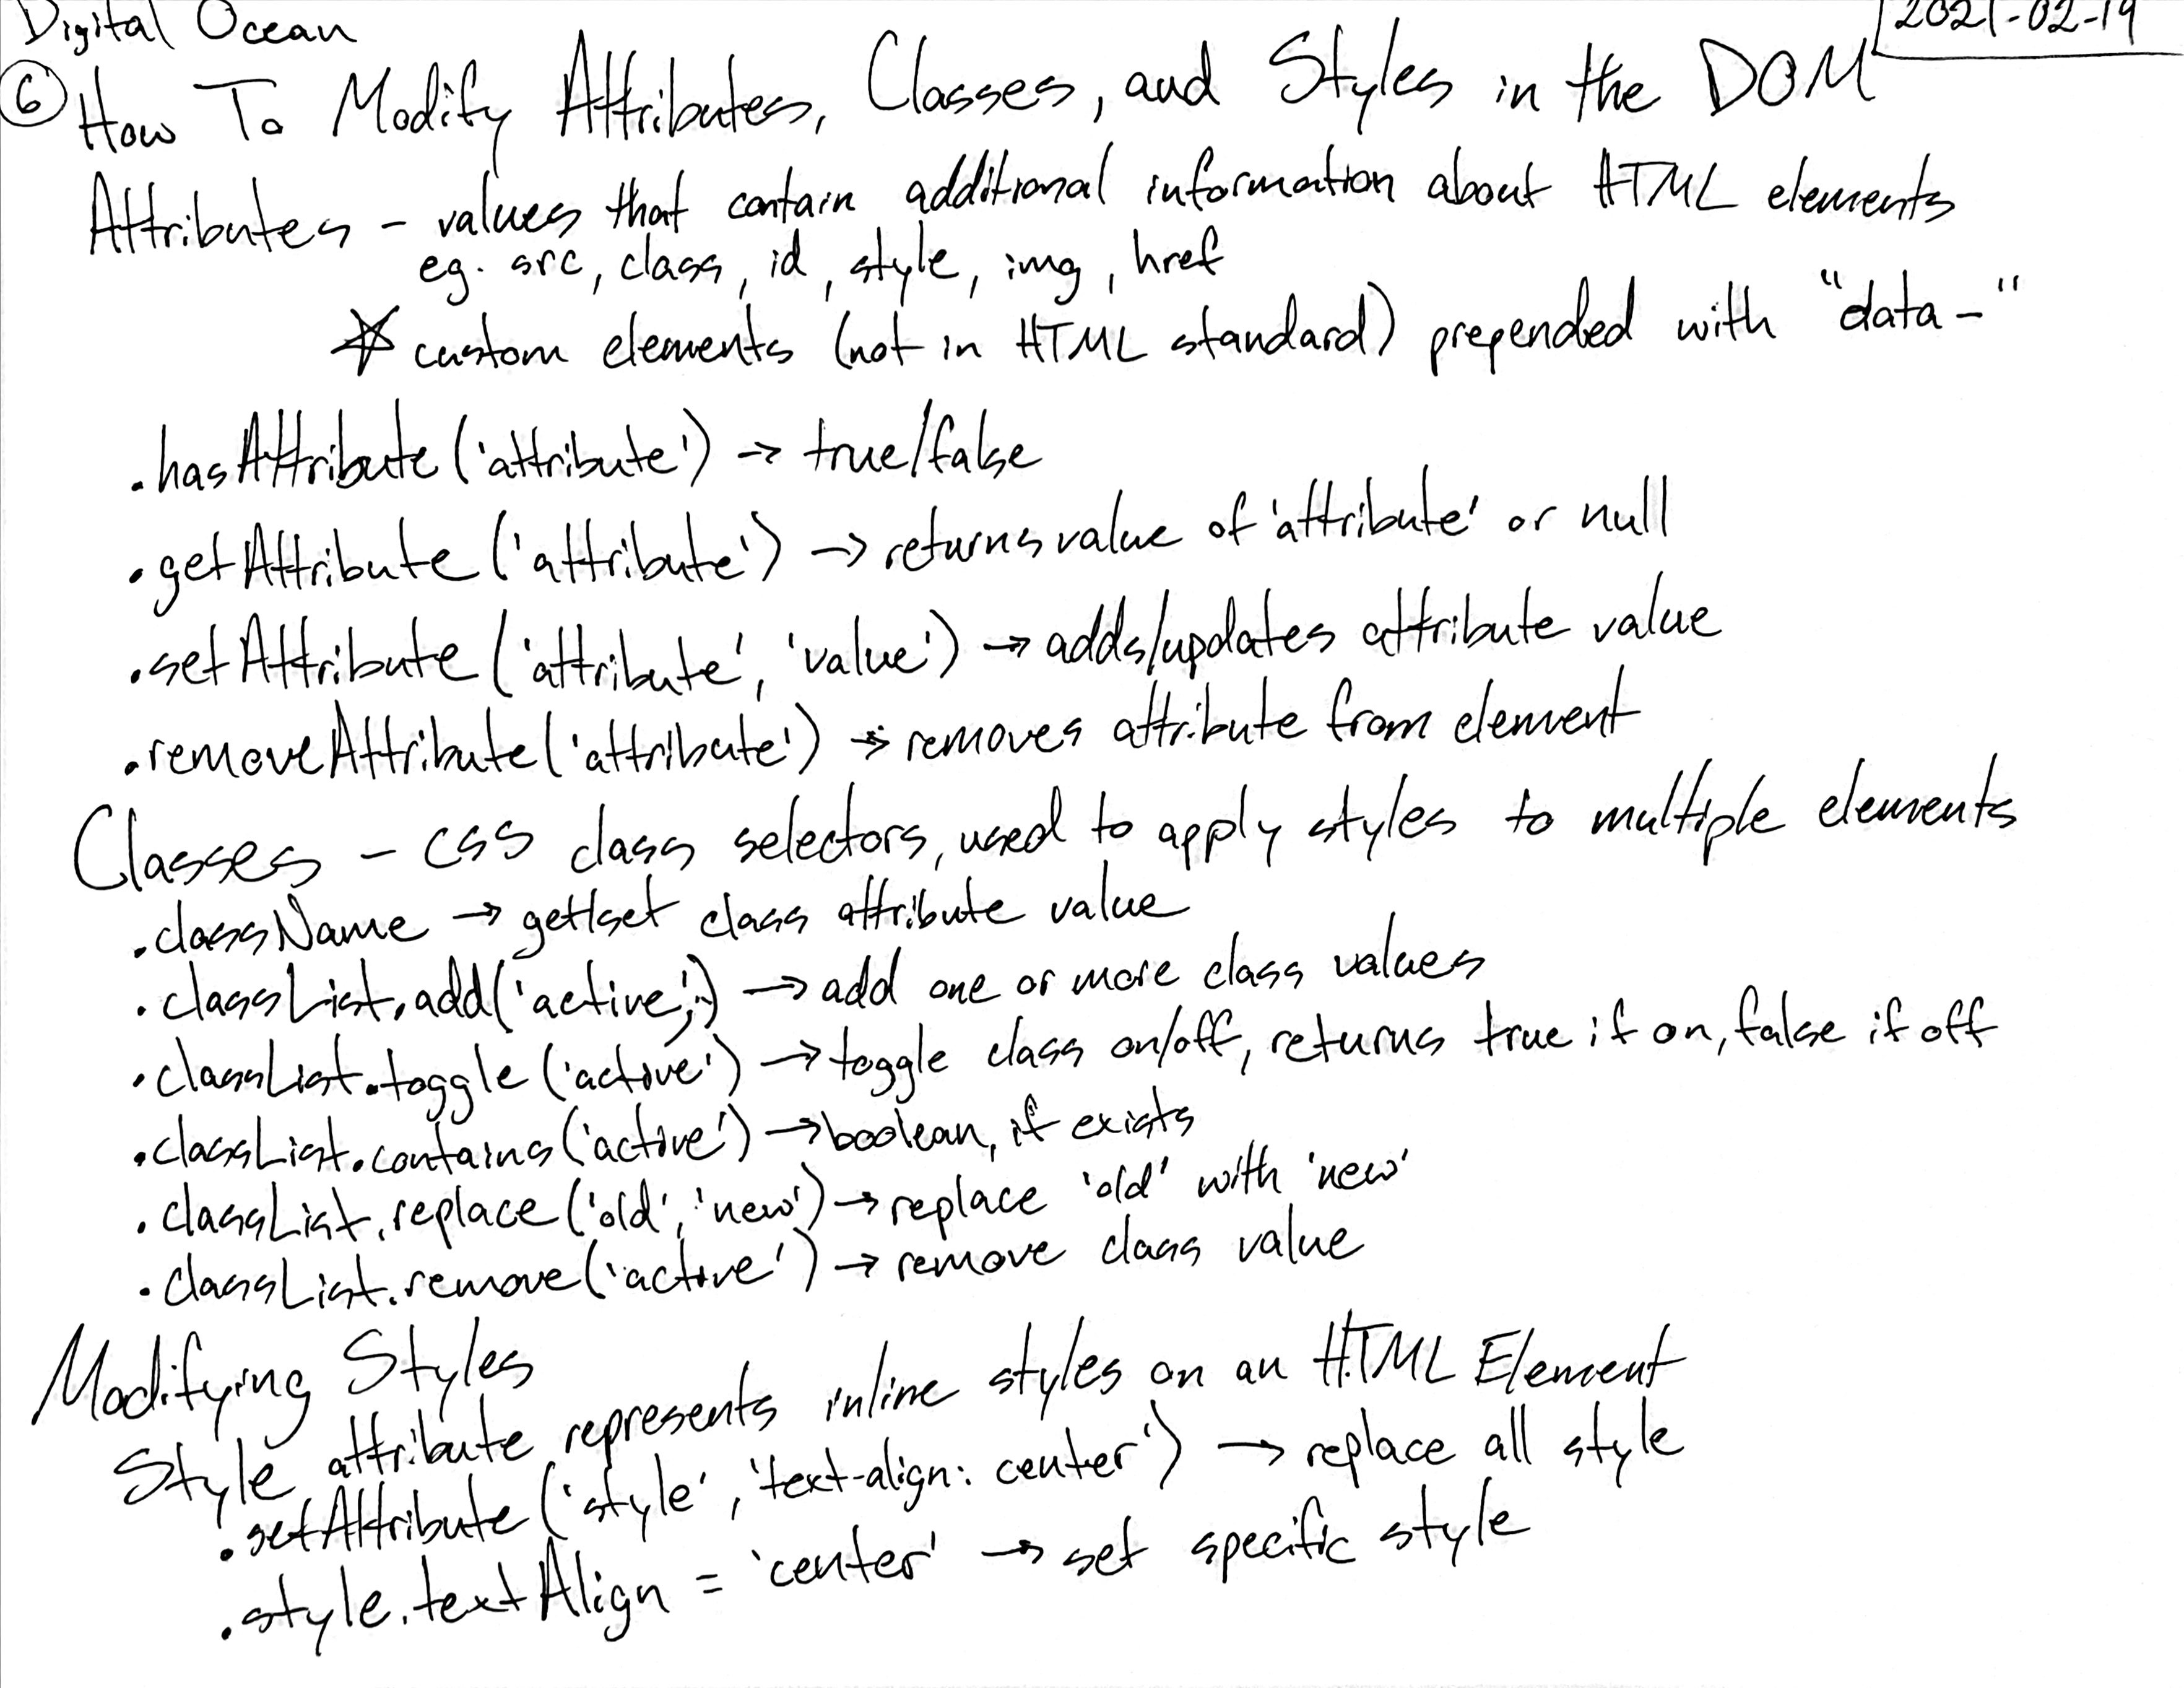 Digital Ocean
2021-02-19
6 How To Modify Attributes, Classes, and Styles in the DOM
Attributes - values that contain additional information about HTML elements
eg. src, class, id, style, img, href
☆ custom elements (not in HTML standard) prepended with "data-"
.hasAttribute('attribute') → true/false
.getAttribute('attribute') → returns value of 'attribute' or null
.setAttribute('attribute', 'value') → adds/updates attribute value
.removeAttribute('attribute') → removes attribute from element
Classes - CSS class selectors, used to apply styles to multiple elements
.className → get/set class attribute value
.classList.add('active',..) → add one or more class values
.classList.toggle('active') → toggle class on/off, returns true if on, false if off
.classList.contains('active') → boolean, if exists
.classList.replace('old', 'new') → replace 'old' with 'new'
.classList.remove('active') → remove class value
Modifying Styles
Style attribute represents inline styles on an HTML Element
.setAttribute('style', 'text-align: center') → replace all style
.style.textAlign = 'center' → set specific style